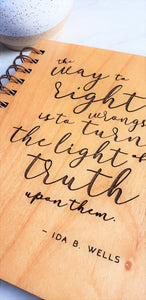 the
way to
right
wrongs
is to turn
the light of
truth
upon them.
- IDA B. WELLS